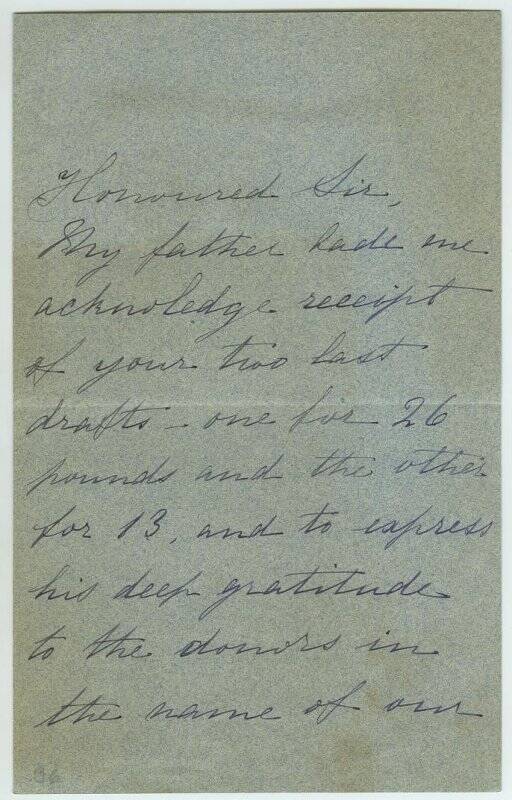 Honoured Sir,
My father bade me
acknowledge receipt
of your two last
drafts - one for 26
pounds and the other
for 13, and to express
his deep gratitude
to the donors in
the name of our
96